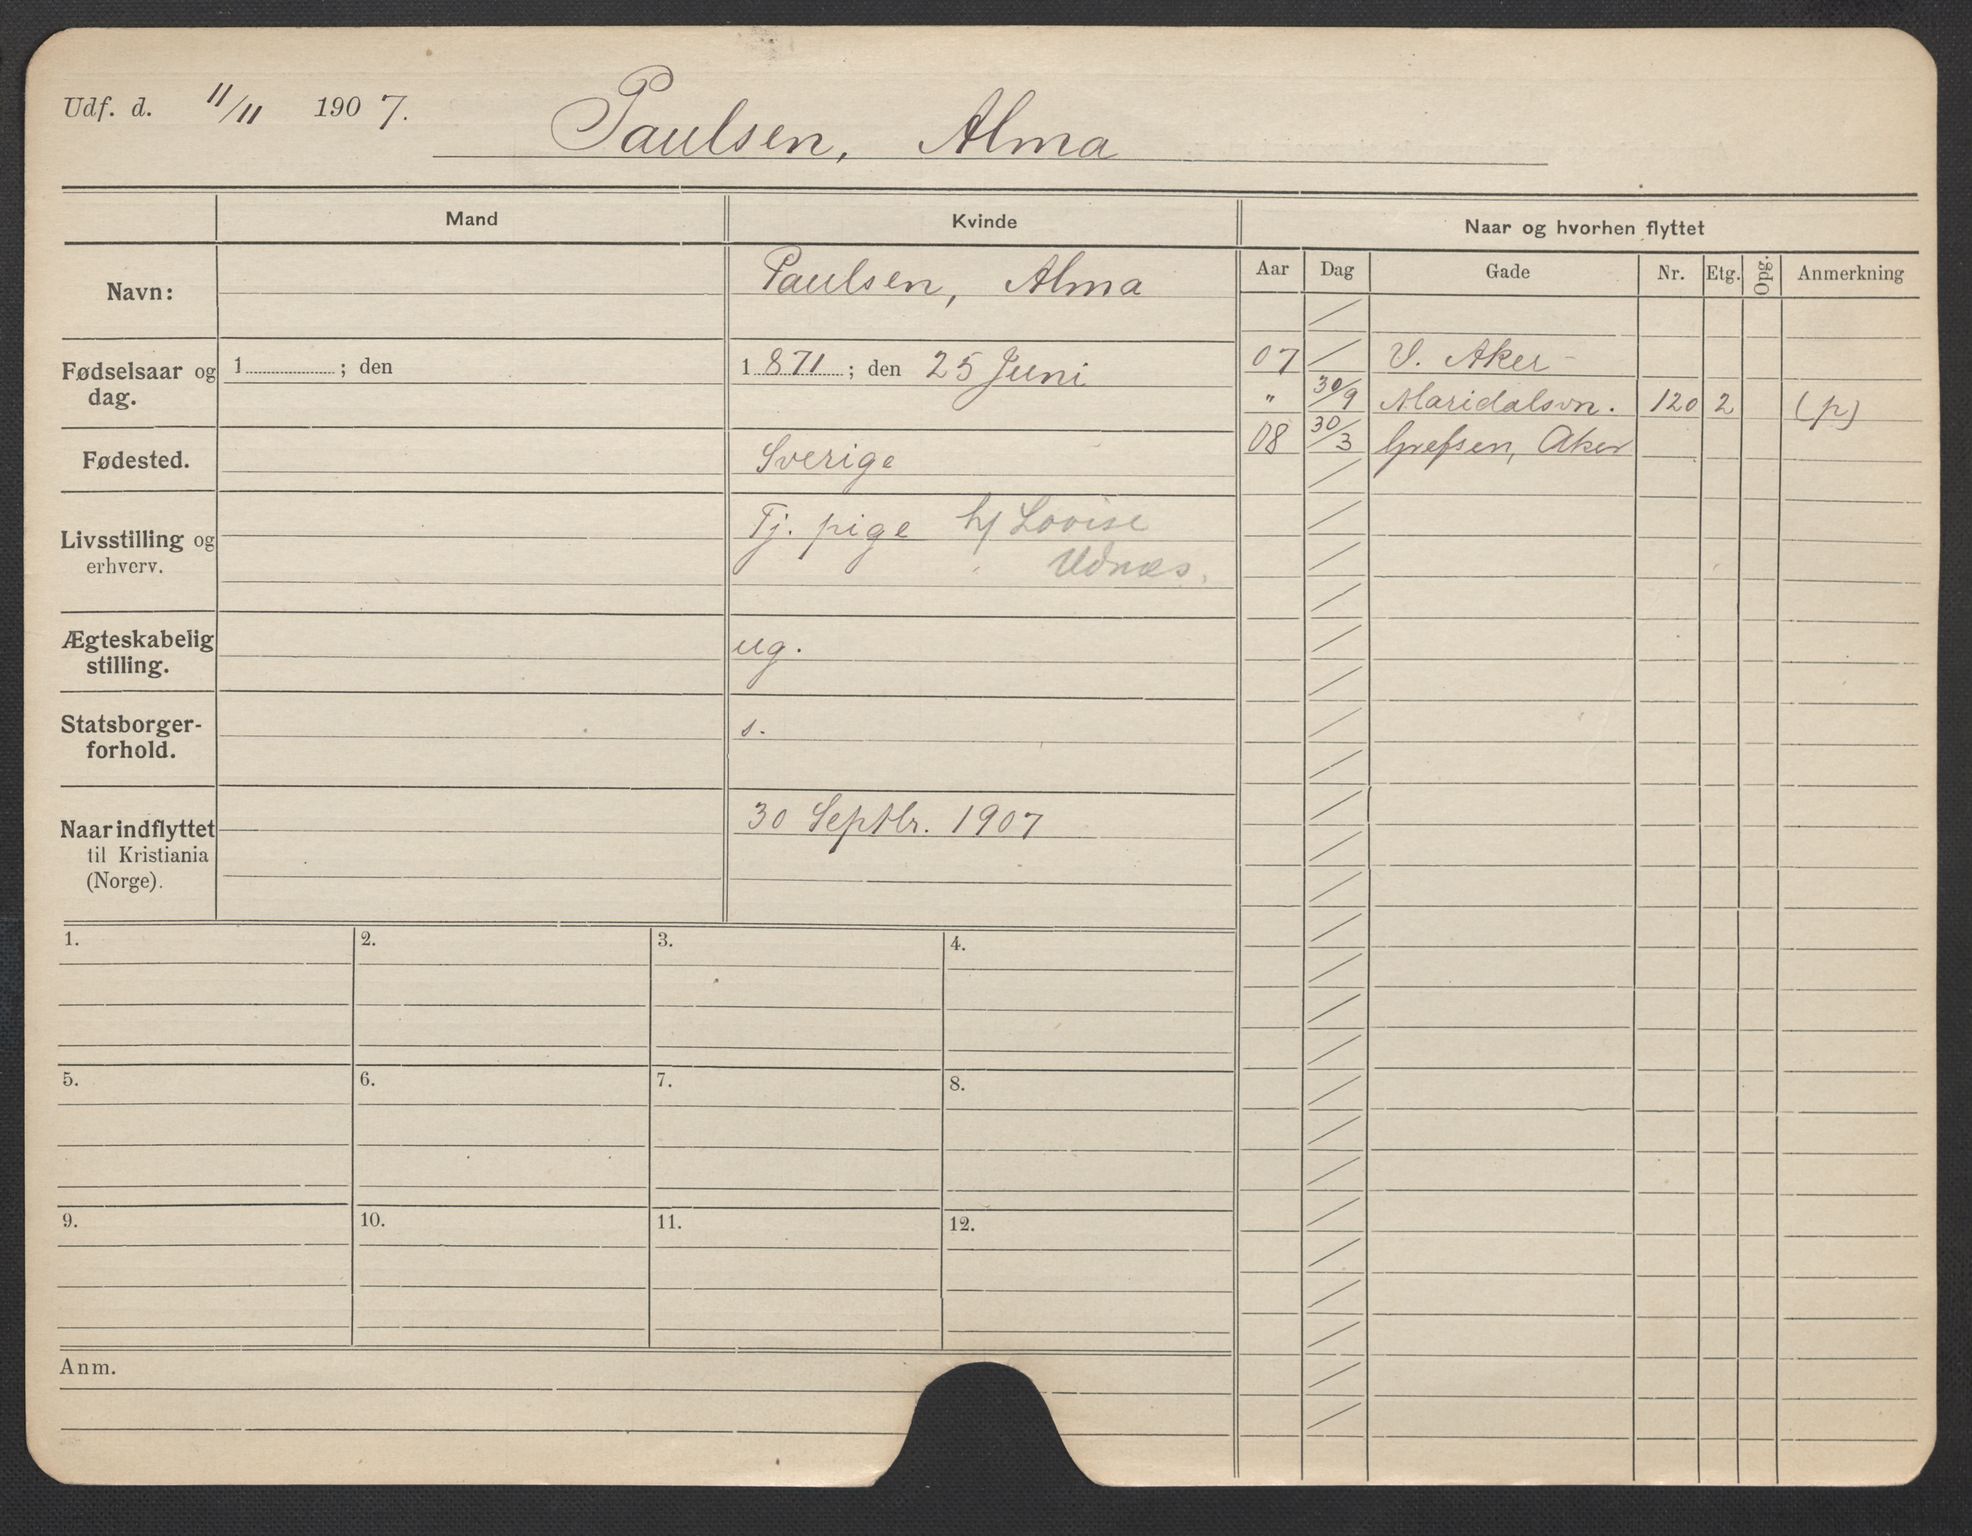 Udf. d. 11/11 1907. Paulsen, Alma
Mand Kvinde Naar og hvorhen flyttet
Aar Dag Gade Nr. Etg. Opg. Anmerkning
Navn: Paulsen, Alma
Fødselsaar og dag. 1 ; den 1871 ; den 25 Juni
07 V. Aker -
" 30/9 Maridalsvn. 120 2 (p)
08 30/3 Grefsen, Aker
Fødested. Sverige
Livsstilling og Tj. pige h/ Lovise
erhverv. Udnæs.
Ægteskabelig
stilling. ug.
Statsborger-
forhold. s.
Naar indflyttet 30 Septbr. 1907
til Kristiania
(Norge).
1. 2. 3. 4.
5. 6. 7. 8.
9. 10. 11. 12.
Anm.